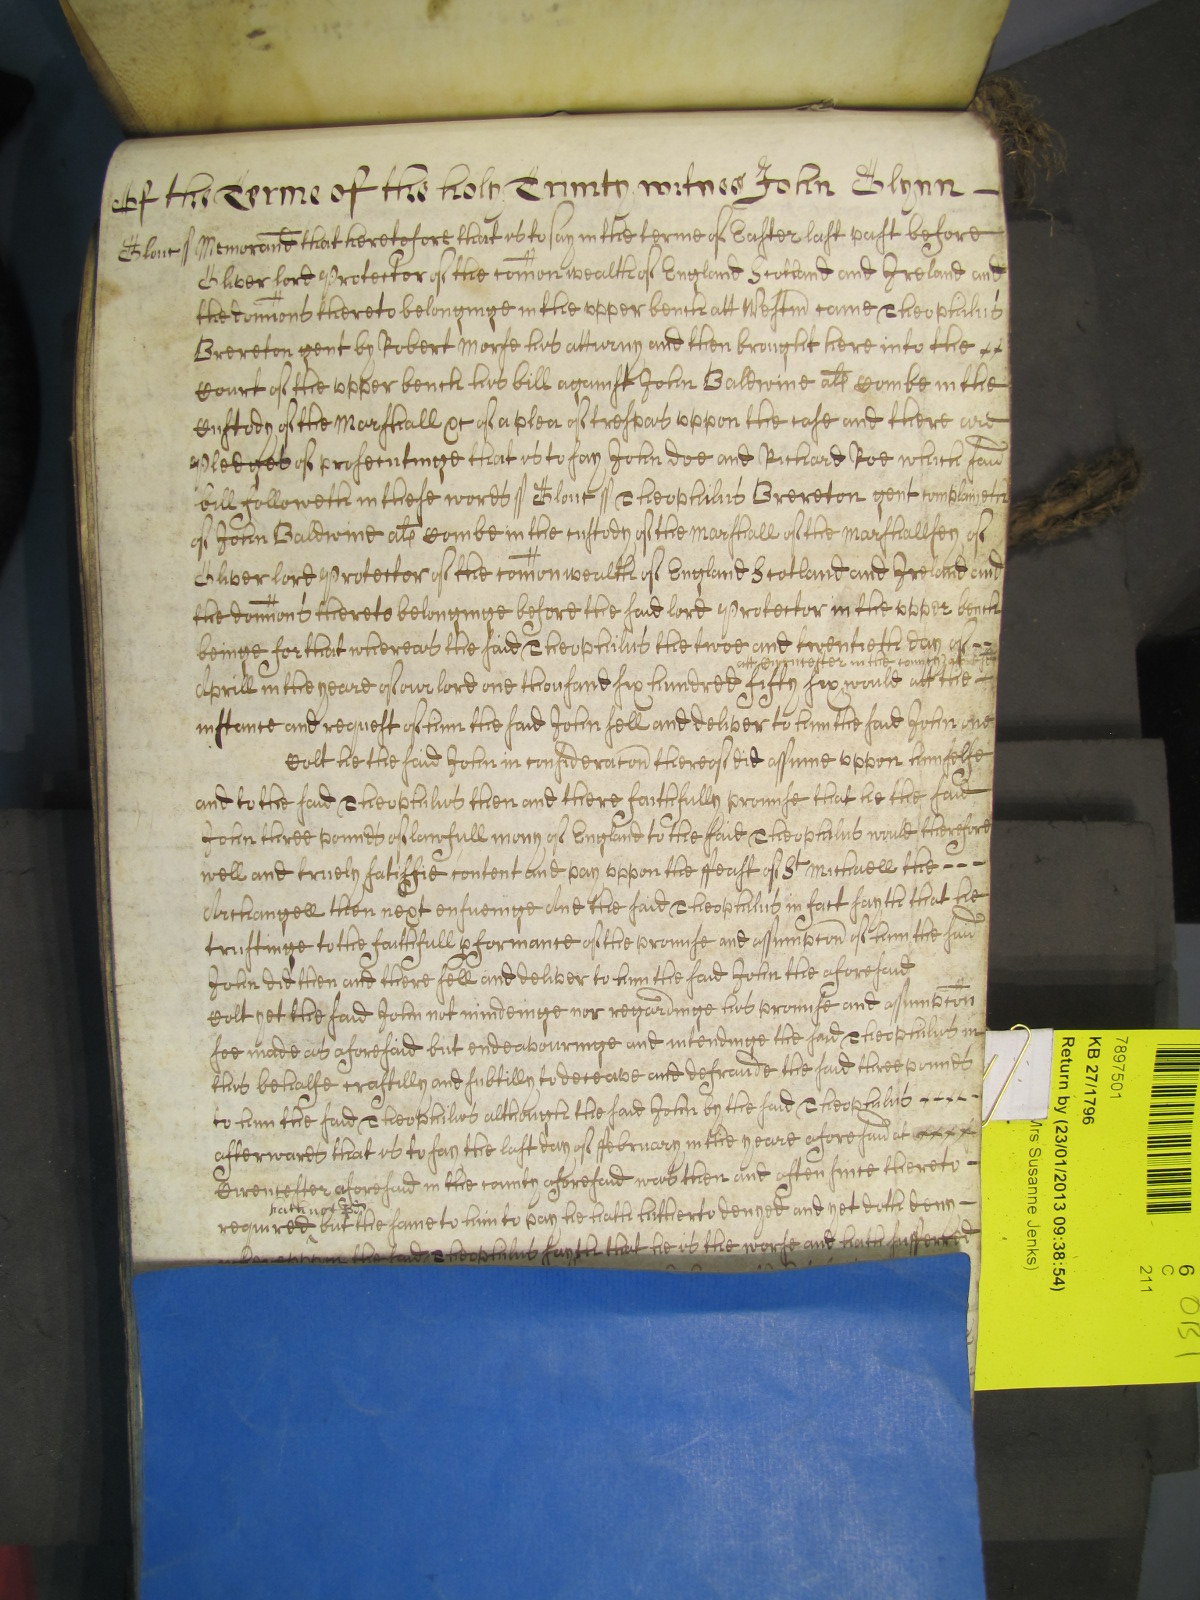 Of the Terme of the holy Trinity witnes John Glynn —
Glouc ss Memorand that heretofore that is to say in the terme of Easter last past before
Oliver lord Protector of the comon wealth of England Scotland and Ireland and
the domions thereto belonginge in the upper bench att Westm came Theophilus
Brereton gent by Robert Morse his atturny and then brought here into the
Court of the upper bench his bill against John Baldwine als Combe in the
Custody of the Marshall &c of a plea of trespas uppon the case and there are
Pledges of prosecutinge that is to say John Doe and Richard Roe which said
bill followeth in these words ss Glouc ss Theophilus Brereton gent complaineth
of John Baldwine als Combe in the custody of the Marshall of the Marshallsey of
Oliver lord Protector of the comon wealth of England Scotland and Ireland and
the domions thereto belonginge before the said lord Protector in the upper bench
beinge for that whereas the said Theophilus the twoe and twentieth day of --
att Cirencester in the county aforesd
Aprill in the yeare of our lord one thousand six hundred fifty six would att the —
instance and request of him the said John sell and deliver to him the said John one
Colt he the said John in consideracon thereof did assume uppon himselfe
and to the said Theophilus then and there faithfully promise that he the said
John three pounds of lawfull mony of England to the said Theophilus would therefore
well and truely satisfie content and pay uppon the ffeast of St Michaell the ---
Archangell then next ensueinge And the said Theophilus in fact sayth that he
trustinge to the faithfull pformance of the promise and assumpcon of him the said
John did then and there sell and deliver to him the said John the aforesaid
Colt yet the said John not mindeinge nor regardinge his promise and assumpcon
soe made as aforesaid but endeavouringe and intendinge the said Theophilus in
this behalfe craftilly and subtilly to deceave and defraude the said three pounds
to him the said Theophilus although the said John by the said Theophilus ----
afterwards that is to say the last day of ffebruary in the yeare aforesaid at
Cirencester aforesaid in the county aforesaid was then and often since thereto —
hath not pd
required but the same to him to pay he hath hitherto denyed and yet doth deny —
whereuppon the said Theophilus sayth that he is the worse and hath suffered
7897501
KB 27/1796
Return by (23/01/2013 09:38:54)
Mrs Susanne Jenks)
6
C
211